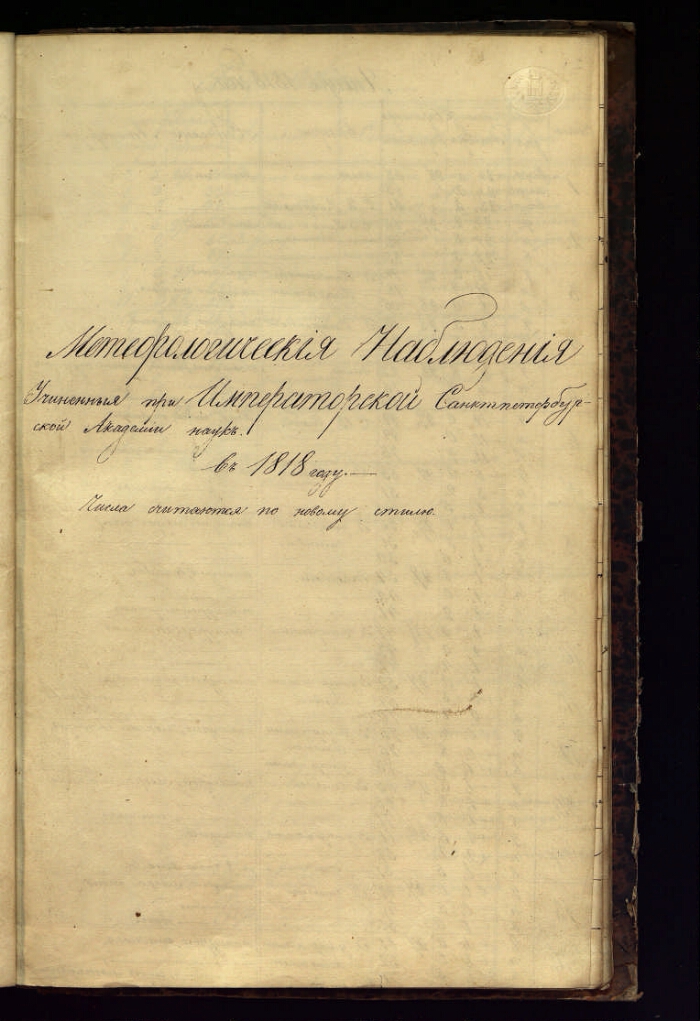 Метеорологическія Наблюденія
Учиненныя при Императорской Санктпетербур-
ской Академіи наукъ.
въ 1818 году.—
Числа считаются по новому стилю.